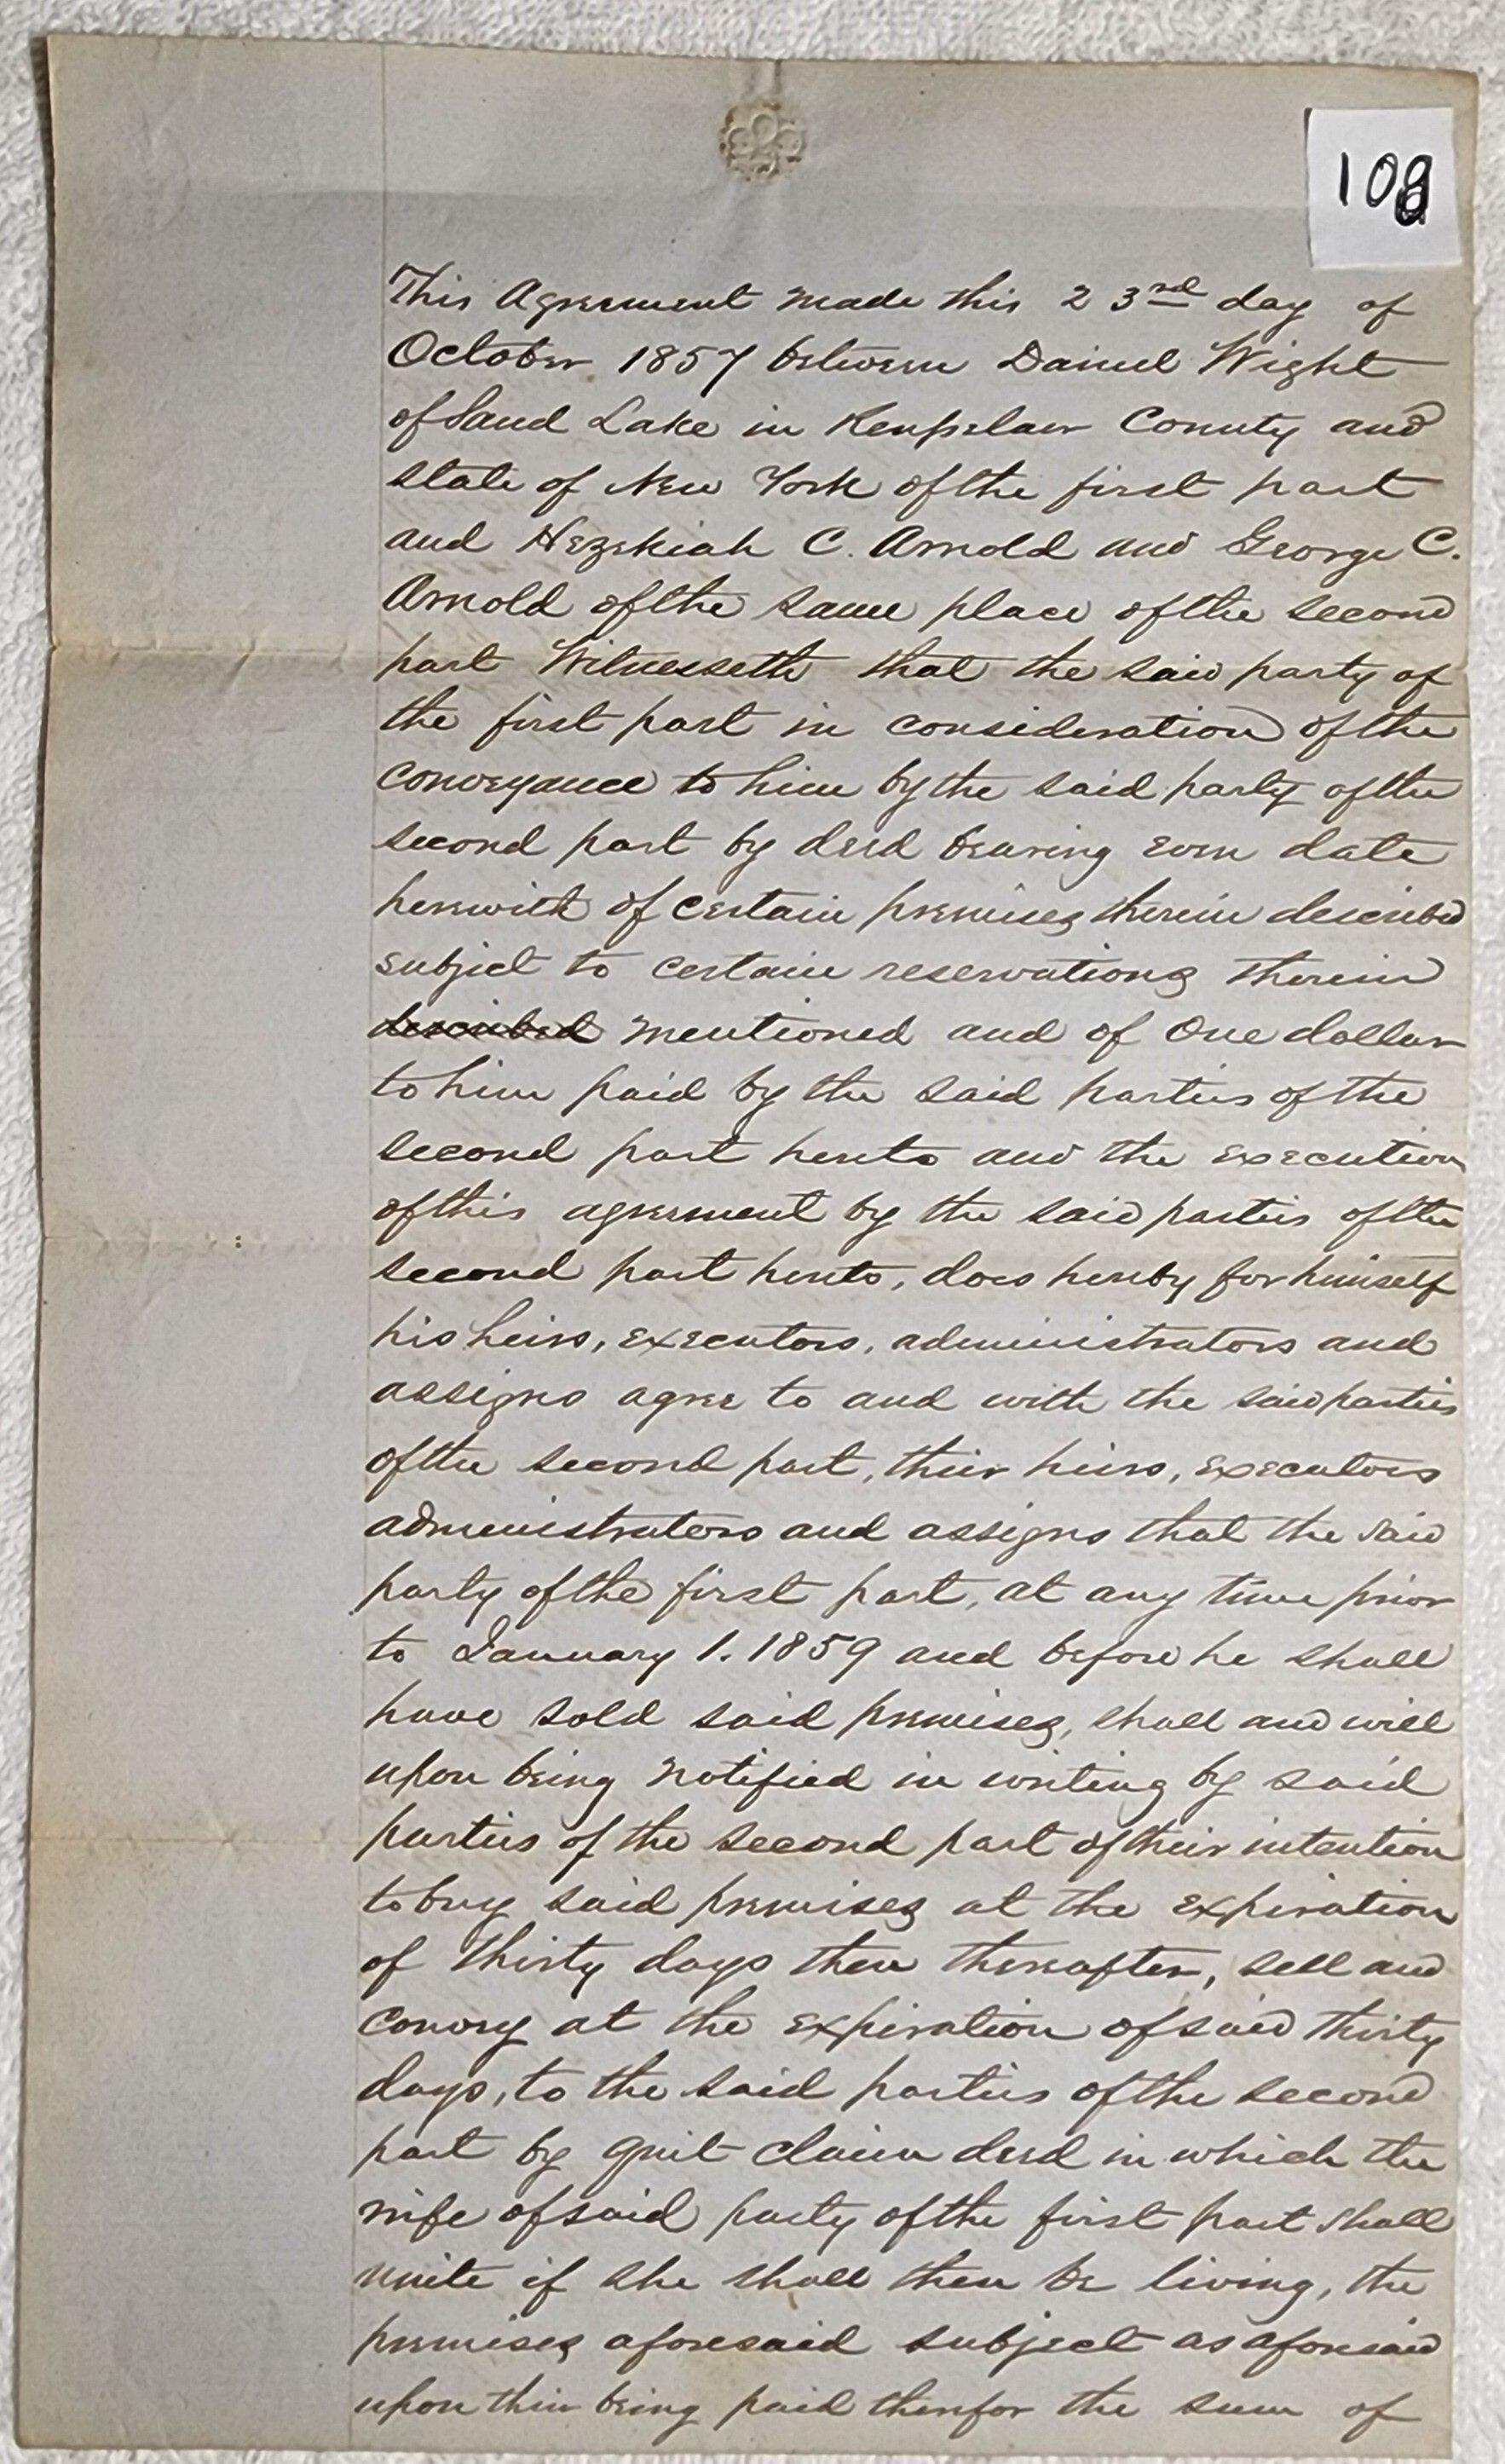 108
This Agreement made this 23rd day of
October 1857 between Daniel Wight
of Sand Lake in Rensselaer County and
state of New York of the first part
and Hezekiah C. Arnold and George C.
Arnold of the same place of the second
part Witnesseth that the said party of
the first part in consideration of the
conveyance to him by the said party of the
second part by deed bearing even date
herewith of certain premises therein described
subject to certain reservations therein
described mentioned and of One dollar
to him paid by the said parties of the
second part hereto and the execution
of this agreement by the said parties of the
second part hereto, does hereby for himself
his heirs, executors, administrators and
assigns agree to and with the said parties
of the second part, their heirs, executors
administrators and assigns that the said
party of the first part, at any time prior
to January 1. 1859 and before he shall
have sold said premises, shall and will
upon being notified in writing by said
parties of the second part of their intention
to buy said premises at the expiration
of thirty days then thereafter, sell and
convey at the expiration of said thirty
days, to the said parties of the second
part by quit claim deed in which the
wife of said party of the first part shall
unite if she shall then be living, the
premises aforesaid subject as aforesaid
upon their being paid therefor the sum of